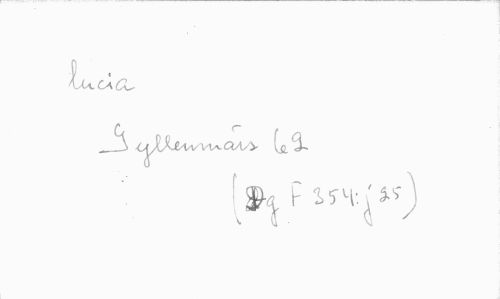 lucia
Gyllenmärs 62
(Dg F 354:j 25)